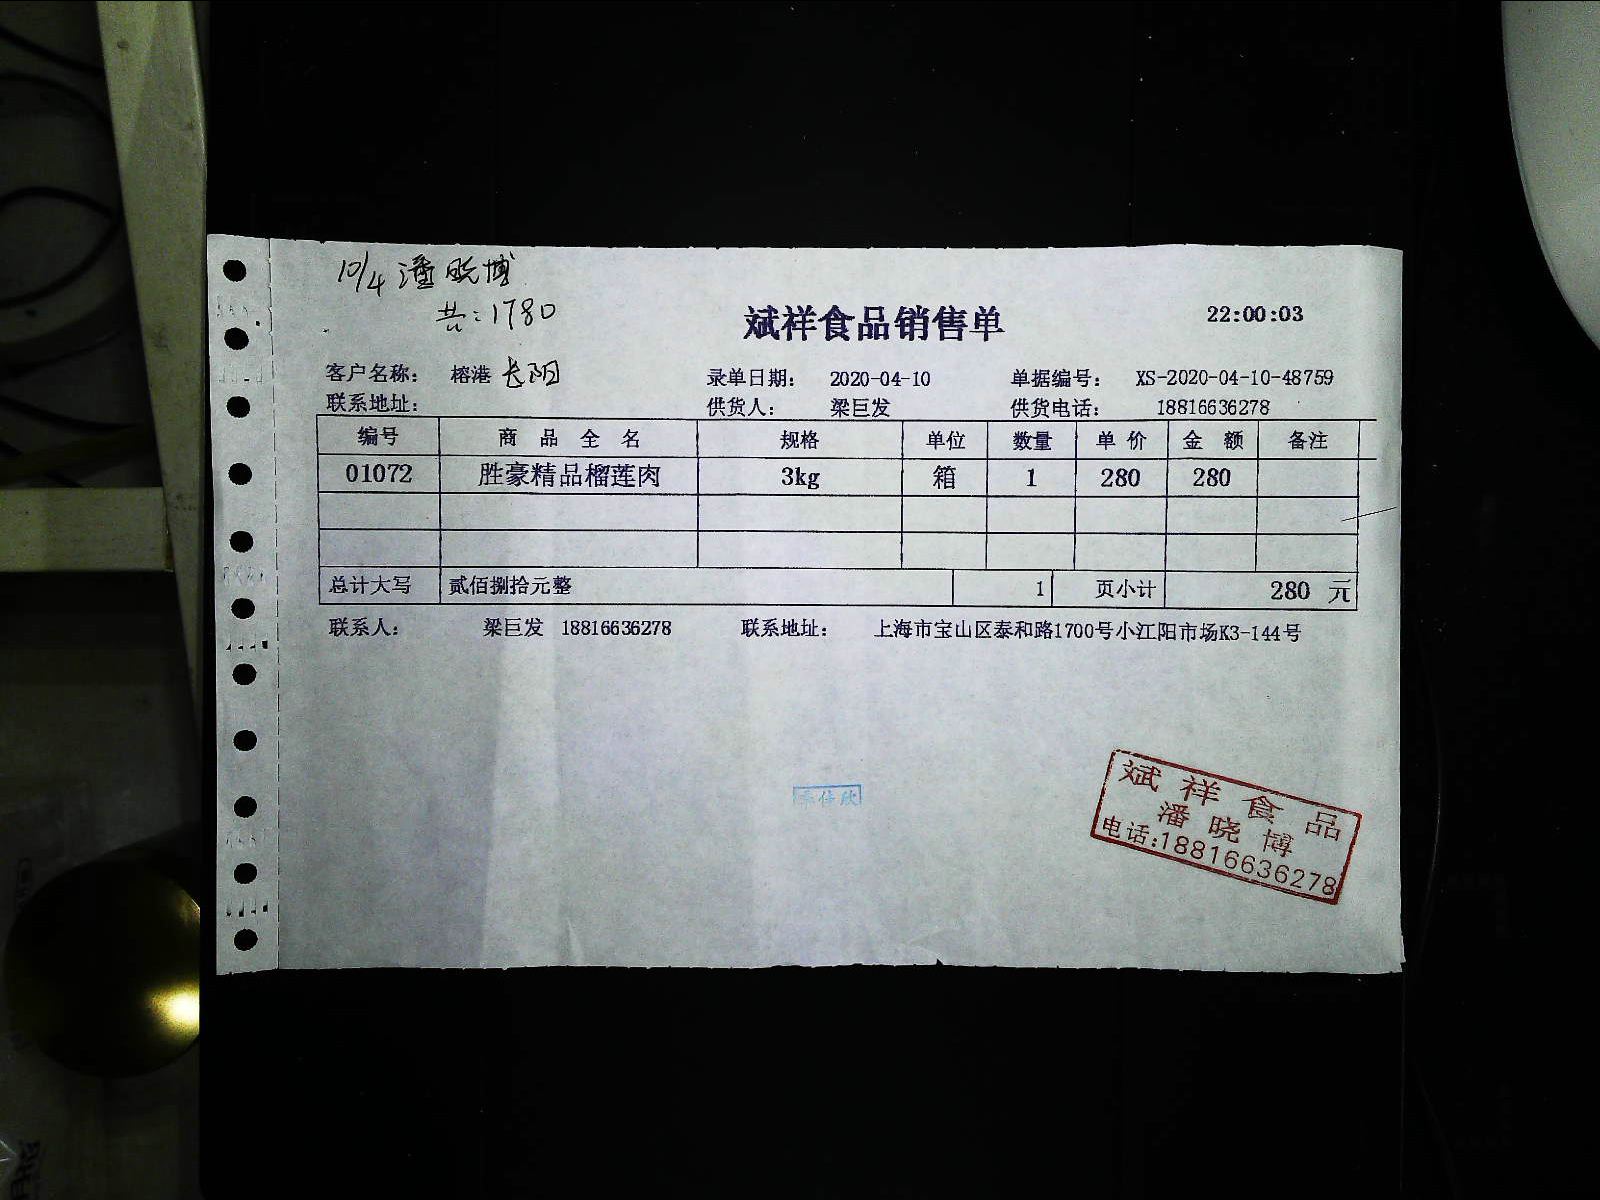 10/4 潘晓博
共:1780
斌祥食品销售单
22:00:03
客户名称: 榕港 长阳 录单日期: 2020-04-10 单据编号: XS-2020-04-10-48759
联系地址: 供货人: 梁巨发 供货电话: 18816636278
编号 商品全名 规格 单位 数量 单价 金额 备注
01072 胜豪精品榴莲肉 3kg 箱 1 280 280
总计大写 贰佰捌拾元整 1 页小计 280 元
联系人: 梁巨发 18816636278 联系地址: 上海市宝山区泰和路1700号小江阳市场K3-144号
斌祥食品
潘晓博
电话:18816636278